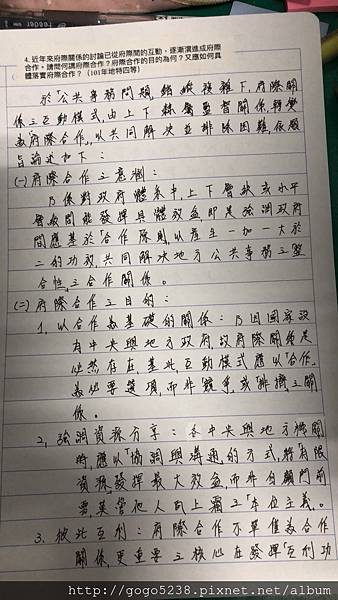 4. 近年來府際關係的討論已從府際間的互動，逐漸演進成府際
合作。請問何謂府際合作？府際合作的目的為何？又應如何具
體落實府際合作？（101年地特四等）
於「公共事務問題」錯綜複雜下，府際關
係之互動模式，由上下隸屬監督關係轉變
為「府際合作」，以共同解決並排除困難，依題
旨論述如下：
(一)府際合作之意涵：
乃係對政府體系中，上下層級或水平
層級間能發揮具體效益，即是強調政府
間應基於「合作原則」，以產生一加一大於
二的功效，共同解決地方公共事務之整
合性之合作關係。
(二)府際合作之目的：
1. 以合作為基礎的關係：乃因國家設
有中央與地方政府，故府際關係是
必然存在，基此，互動模式應以「合作」
為必要選項，而非競爭或「排擠」之關
係。
2. 強調資源分享：各中央與地方機關
時，應以「協調與溝通」的方式，將「有限
資源」發揮最大效益，而非自顧門前
雪，莫管他人瓦上霜之「本位主義」。
3. 彼此互利：府際合作不單僅為合作
關係，更重要之核心在發揮「互利功
http://gogo5238.pixnet.net/album